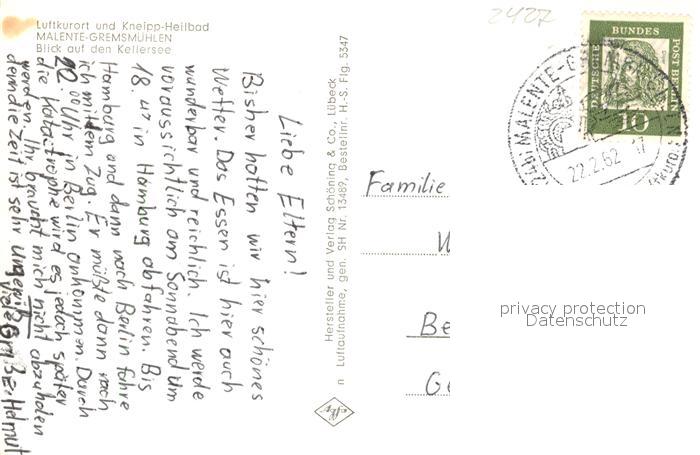 2427
Luftkurort und Kneipp-Heilbad
MALENTE-GREMSMÜHLEN
Blick auf den Kellersee
Liebe Eltern!
Bisher hatten wir hier schönes
Wetter. Das Essen ist hier auch
wunderbar und reichlich. Ich werde
voraussichtlich am Sonnabend um
18.47 in Hamburg abfahren. Bis
Hamburg und dann nach Berlin fahre
ich mit dem Zug. Er müßte dann nach
Uhr in Berlin ankommen. Durch
die Katastrophe wird es jedoch später
werden. Ihr braucht mich nicht abzuholen
denn die Zeit ist sehr ungewiß.
Viele Grüße, Helmut
Hersteller und Verlag Schöning & Co., Lübeck
n Luftaufnahme, gen. SH Nr. 13489, Bestellnr. H.-S. Flg. 5347
Agfa
DEUTSCHE BUNDESPOST BERLIN
10
MALENTE-G
22.2.62 17
Familie
W
Be
G
privacy protection
Datenschutz